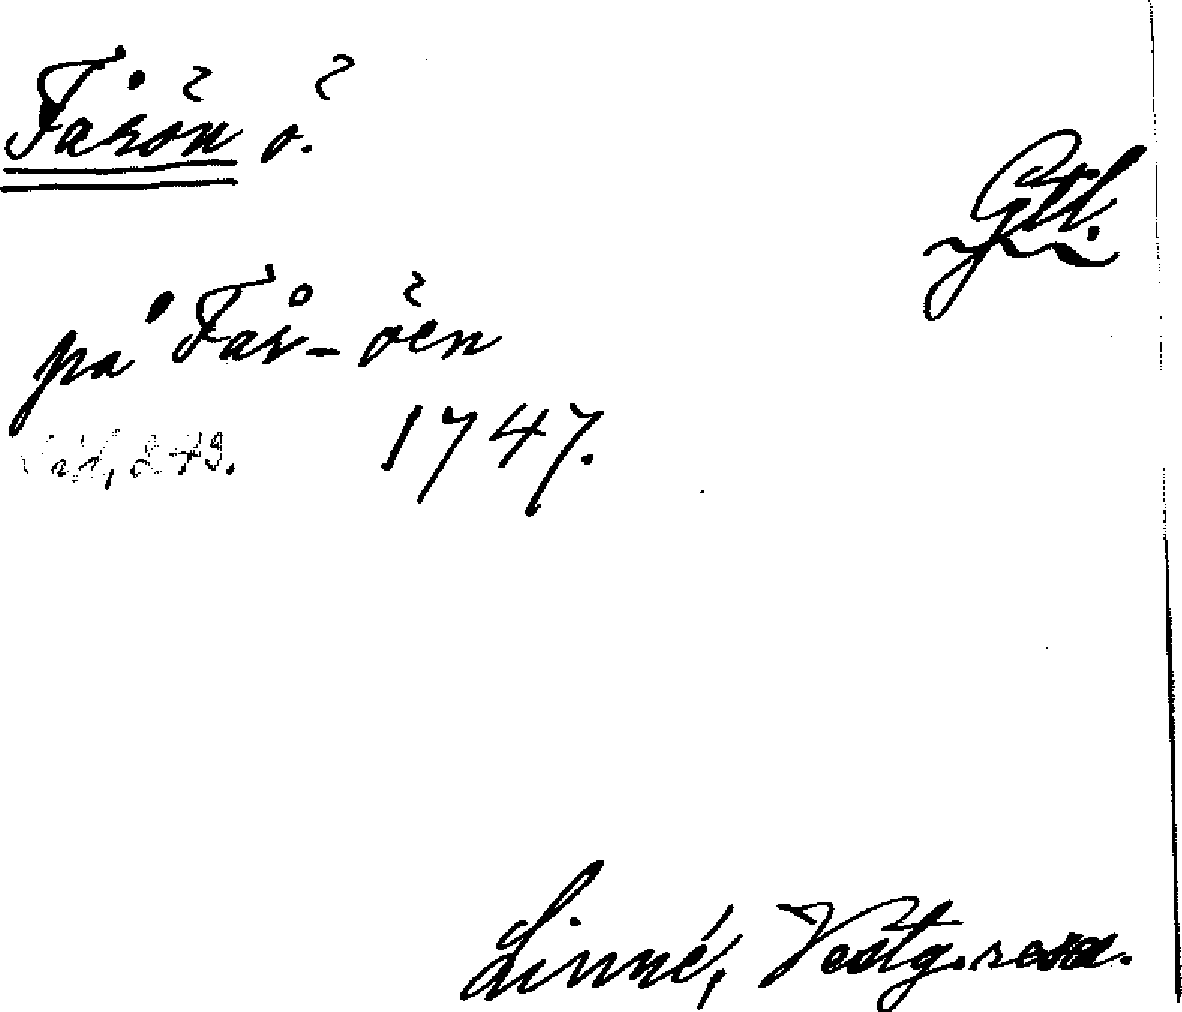 Fårön ö.
Gtl.
på Får-öen
1747.
249.
Linné, Vestg. resa.